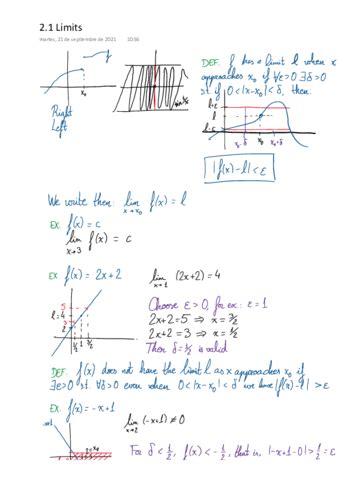 2.1 Limits
martes, 21 de septiembre de 2021 10:56
f
x₀
Right
Left
DEF. f has a limit l when x
approaches x₀ if ∀ε>0 ∃δ>0
st if 0<|x-x₀|<δ, then:
l+ε
l
l-ε
x₀-δ x₀ x₀+δ
|f(x)-l|<ε
We write then: lim f(x) = l
x→x₀
EX. f(x) = c
lim f(x) = c
x→3
EX f(x) = 2x+2 lim (2x+2) = 4
x→1
5
l=4
3
2
1/2 1 3/2
Choose ε>0, for ex: ε=1
2x+2=5 ⇒ x = 3/2
2x+2=3 ⇒ x = 1/2
Then δ=1/2 is valid
DEF. f(x) does not have the limit l as x approaches x₀ if
∃ε>0 st. ∀δ>0 even when 0<|x-x₀|<δ we have |f(x)-l| > ε
EX. f(x) = -x+1 lim (-x+1) ≠ 0
x→2
For δ < 1/2, f(x) < -1/2, that is, |-x+1-0| > 1/2 = ε